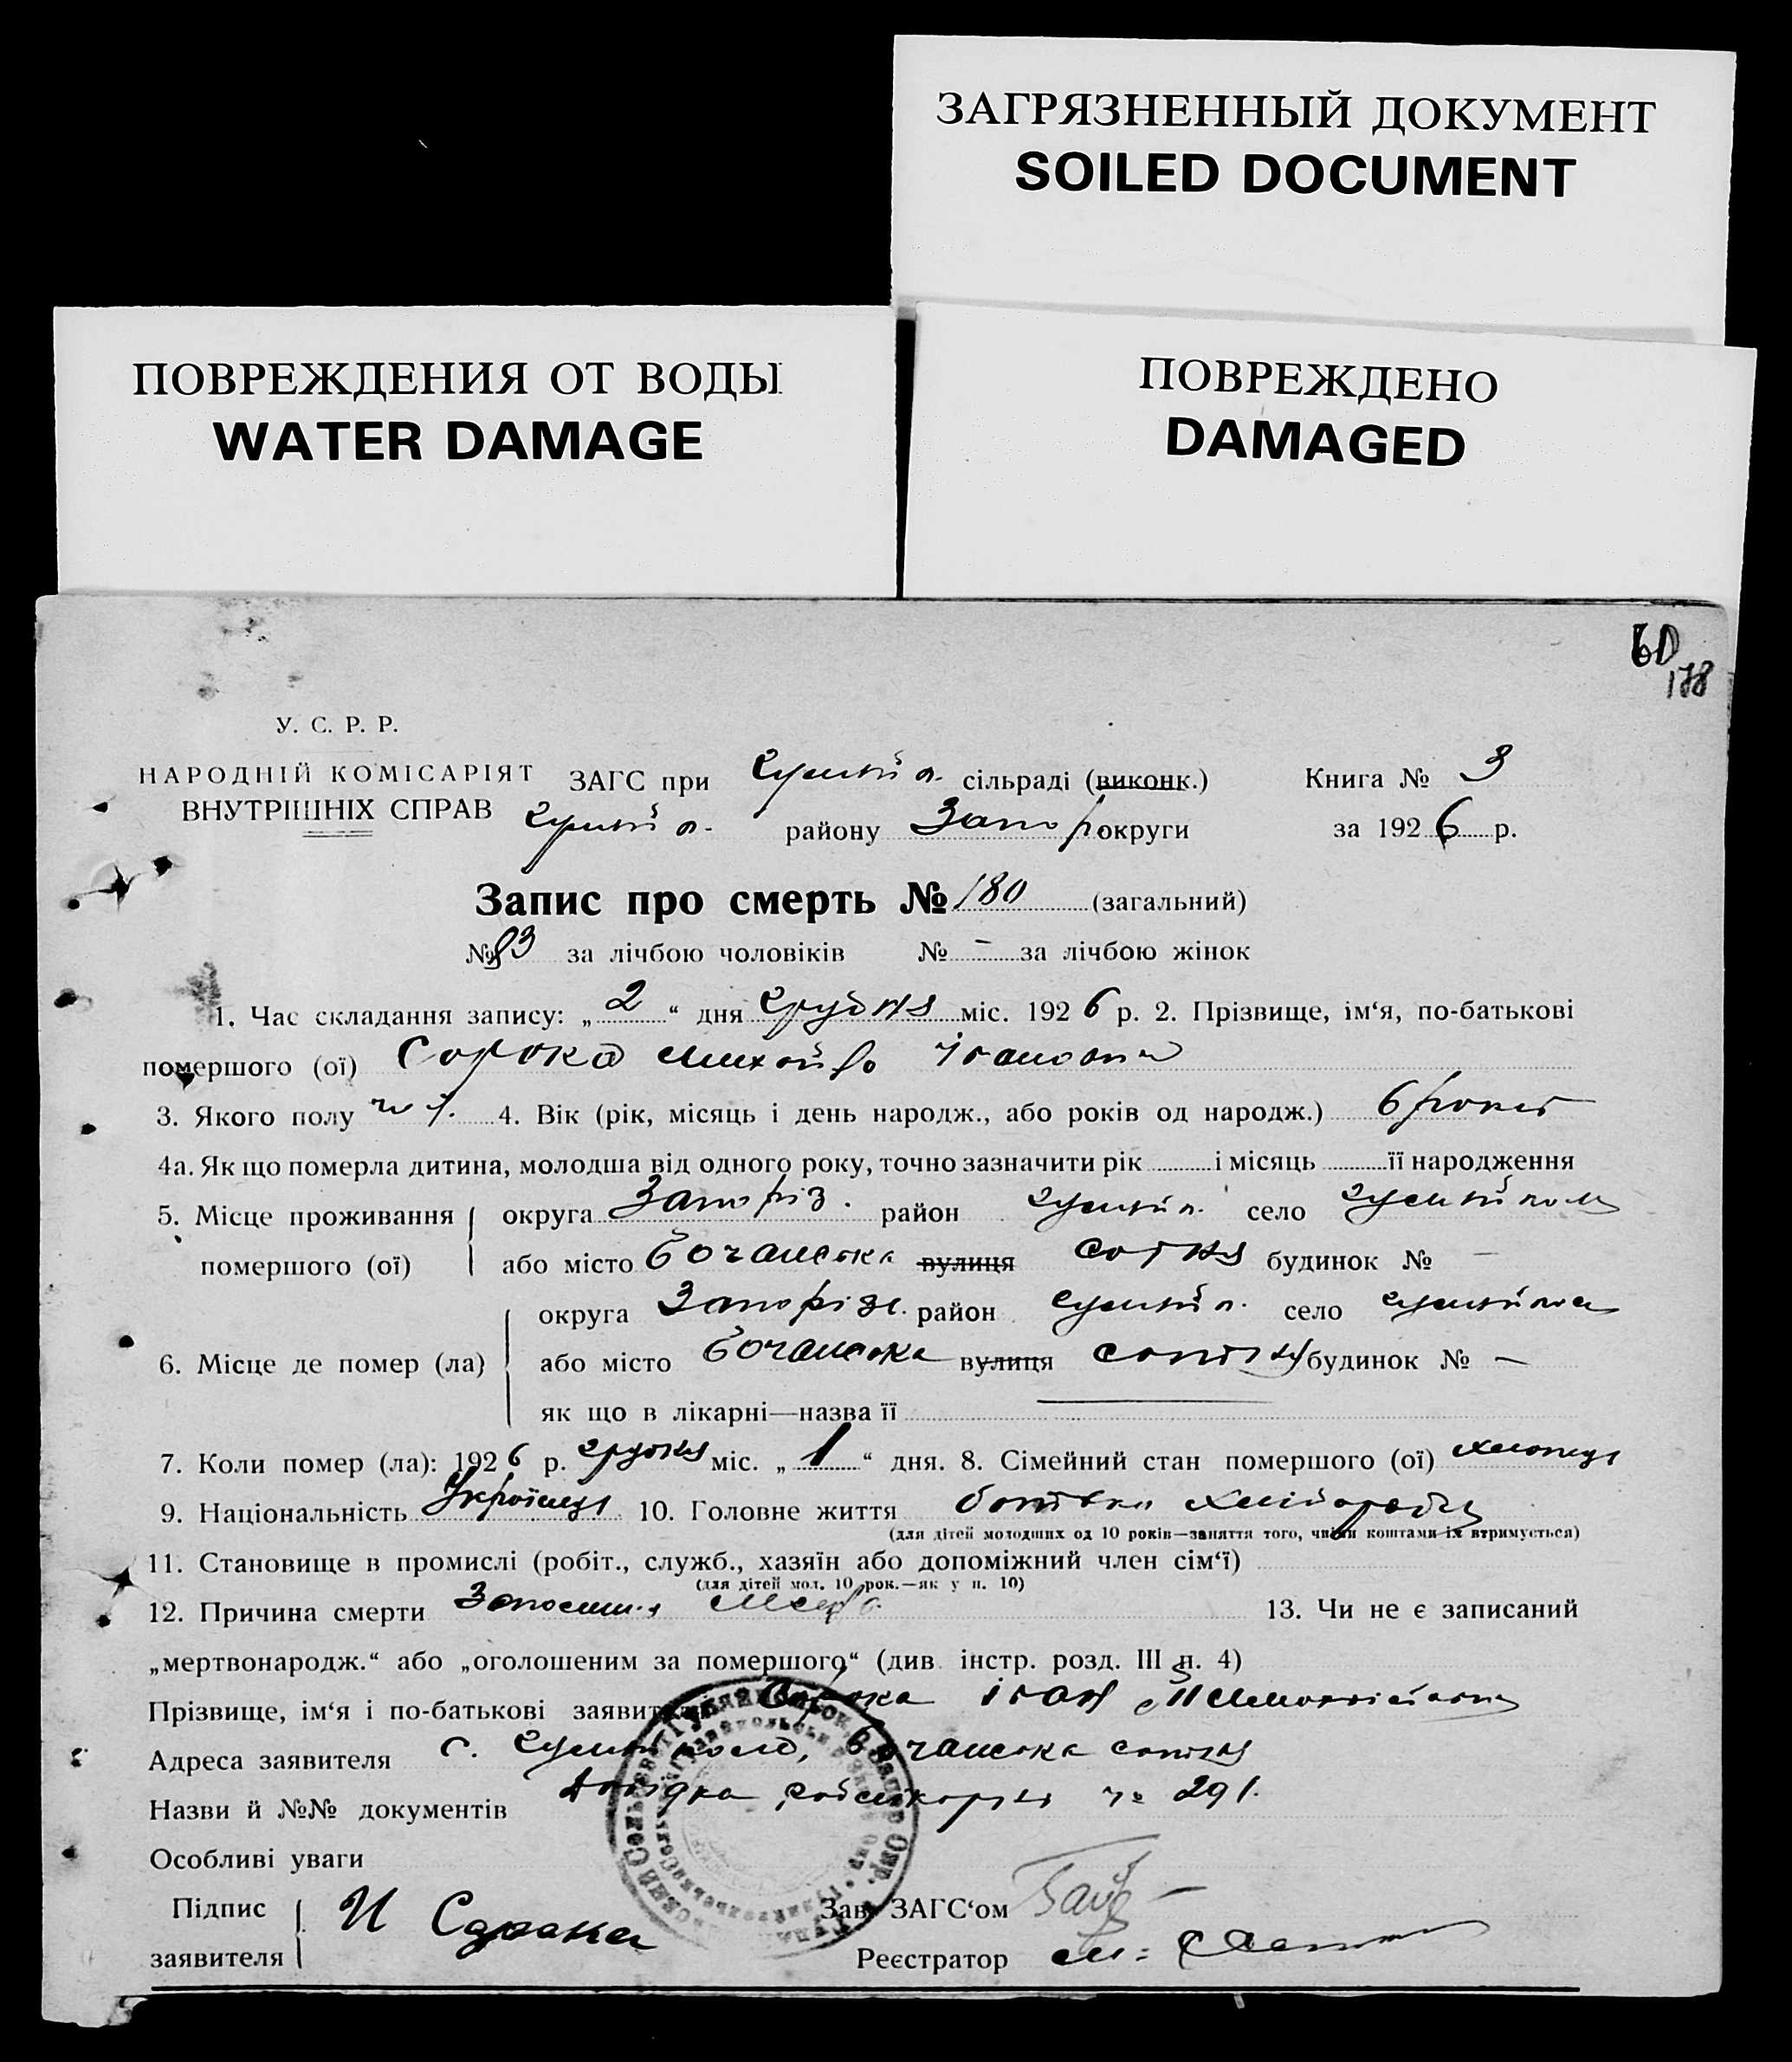 ЗАГРЯЗНЕННЫЙ ДОКУМЕНТ
SOILED DOCUMENT
ПОВРЕЖДЕНИЯ ОТ ВОДЫ
WATER DAMAGE
ПОВРЕЖДЕНО
DAMAGED
60
178
У. С. Р. Р.
НАРОДНІЙ КОМІСАРІЯТ
ВНУТРІШНІХ СПРАВ
ЗАГС при Гуляйп. сільраді (виконк.) Книга № 3
Гуляйп. району Запор. округи за 1926 р.
Запис про смерть № 180 (загальний)
№ 83 за лічбою чоловіків № - за лічбою жінок
1. Час складання запису: „2“ дня грудня міс. 1926 р. 2. Прізвище, ім‘я, по-батькові
помершого (ої) Сорока Михайло Іванович
3. Якого полу чол. 4. Вік (рік, місяць і день народж., або років од народж.) 6 років
4а. Як що померла дитина, молодша від одного року, точно зазначити рік і місяць її народження
5. Місце проживання округа Запоріз. район Гуляйп. село Гуляйполе
помершого (ої) або місто Бочанська вулиця сотня будинок № —
округа Запоріж. район Гуляйп. село Гуляйполе
6. Місце де помер (ла) або місто Бочанська вулиця сотня будинок № —
як що в лікарні—назва її
7. Коли помер (ла): 1926 р. грудня міс. „1“ дня. 8. Сімейний стан помершого (ої) хлопець
9. Національність Українець 10. Головне життя батька хлібороб
(для дітей молодших од 10 років—заняття того, чиїми коштами їх втримується)
11. Становище в промислі (робіт., служб., хазяїн або допоміжний член сім‘ї)
(для дітей мол. 10 рок.—як у п. 10)
12. Причина смерти Запосення 13. Чи не є записаний
„мертвонародж.“ або „оголошеним за помершого“ (див. інстр. розд. III п. 4)
Прізвище, ім‘я і по-батькові заявителя Сорока Іван
Адреса заявителя с. Гуляйполе, Бочанська сотня
Назви й №№ документів Довідка № 291.
Особливі уваги
Підпис
заявителя И Сорока
Зав. ЗАГС‘ом
Реєстратор